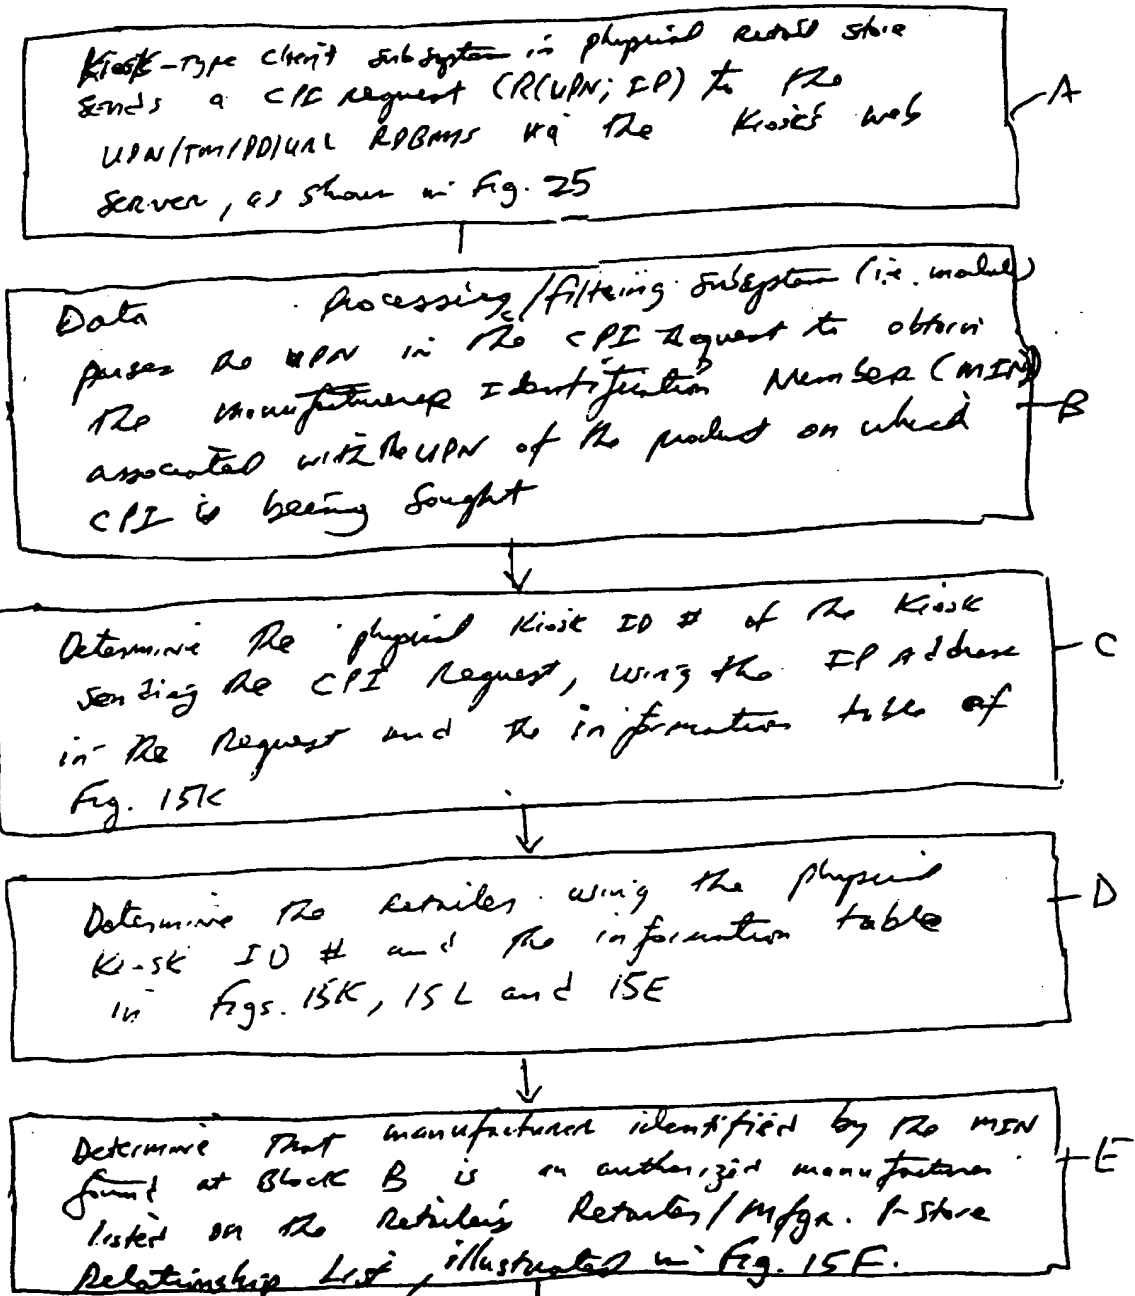 Kiosk-Type Client Subsystem in physical Retail store
sends a CPI request (R(UPN; IP) to the
UPN/TM/PD/URL RDBMS via the Kiosk's web
Server, as shown in Fig. 25
A
Data Processing/filtering Subsystem (i.e. module)
parses the UPN in the CPI Request to obtain
the manufacturer Identification Number (MIN)
associated with the UPN of the product on which
CPI is being sought
B
Determine the physical Kiosk ID # of the Kiosk
sending the CPI Request, using the IP Address
in the Request and the information table of
Fig. 15K
C
Determine the retailer using the physical
Kiosk ID # and the information table
in Figs. 15K, 15L and 15E
D
Determine that manufacturer identified by the MIN
found at Block B is an authorized manufacturer
listed on the Retailer's Retailer/Mfgr. P-Store
Relationship List, illustrated in Fig. 15F.
E